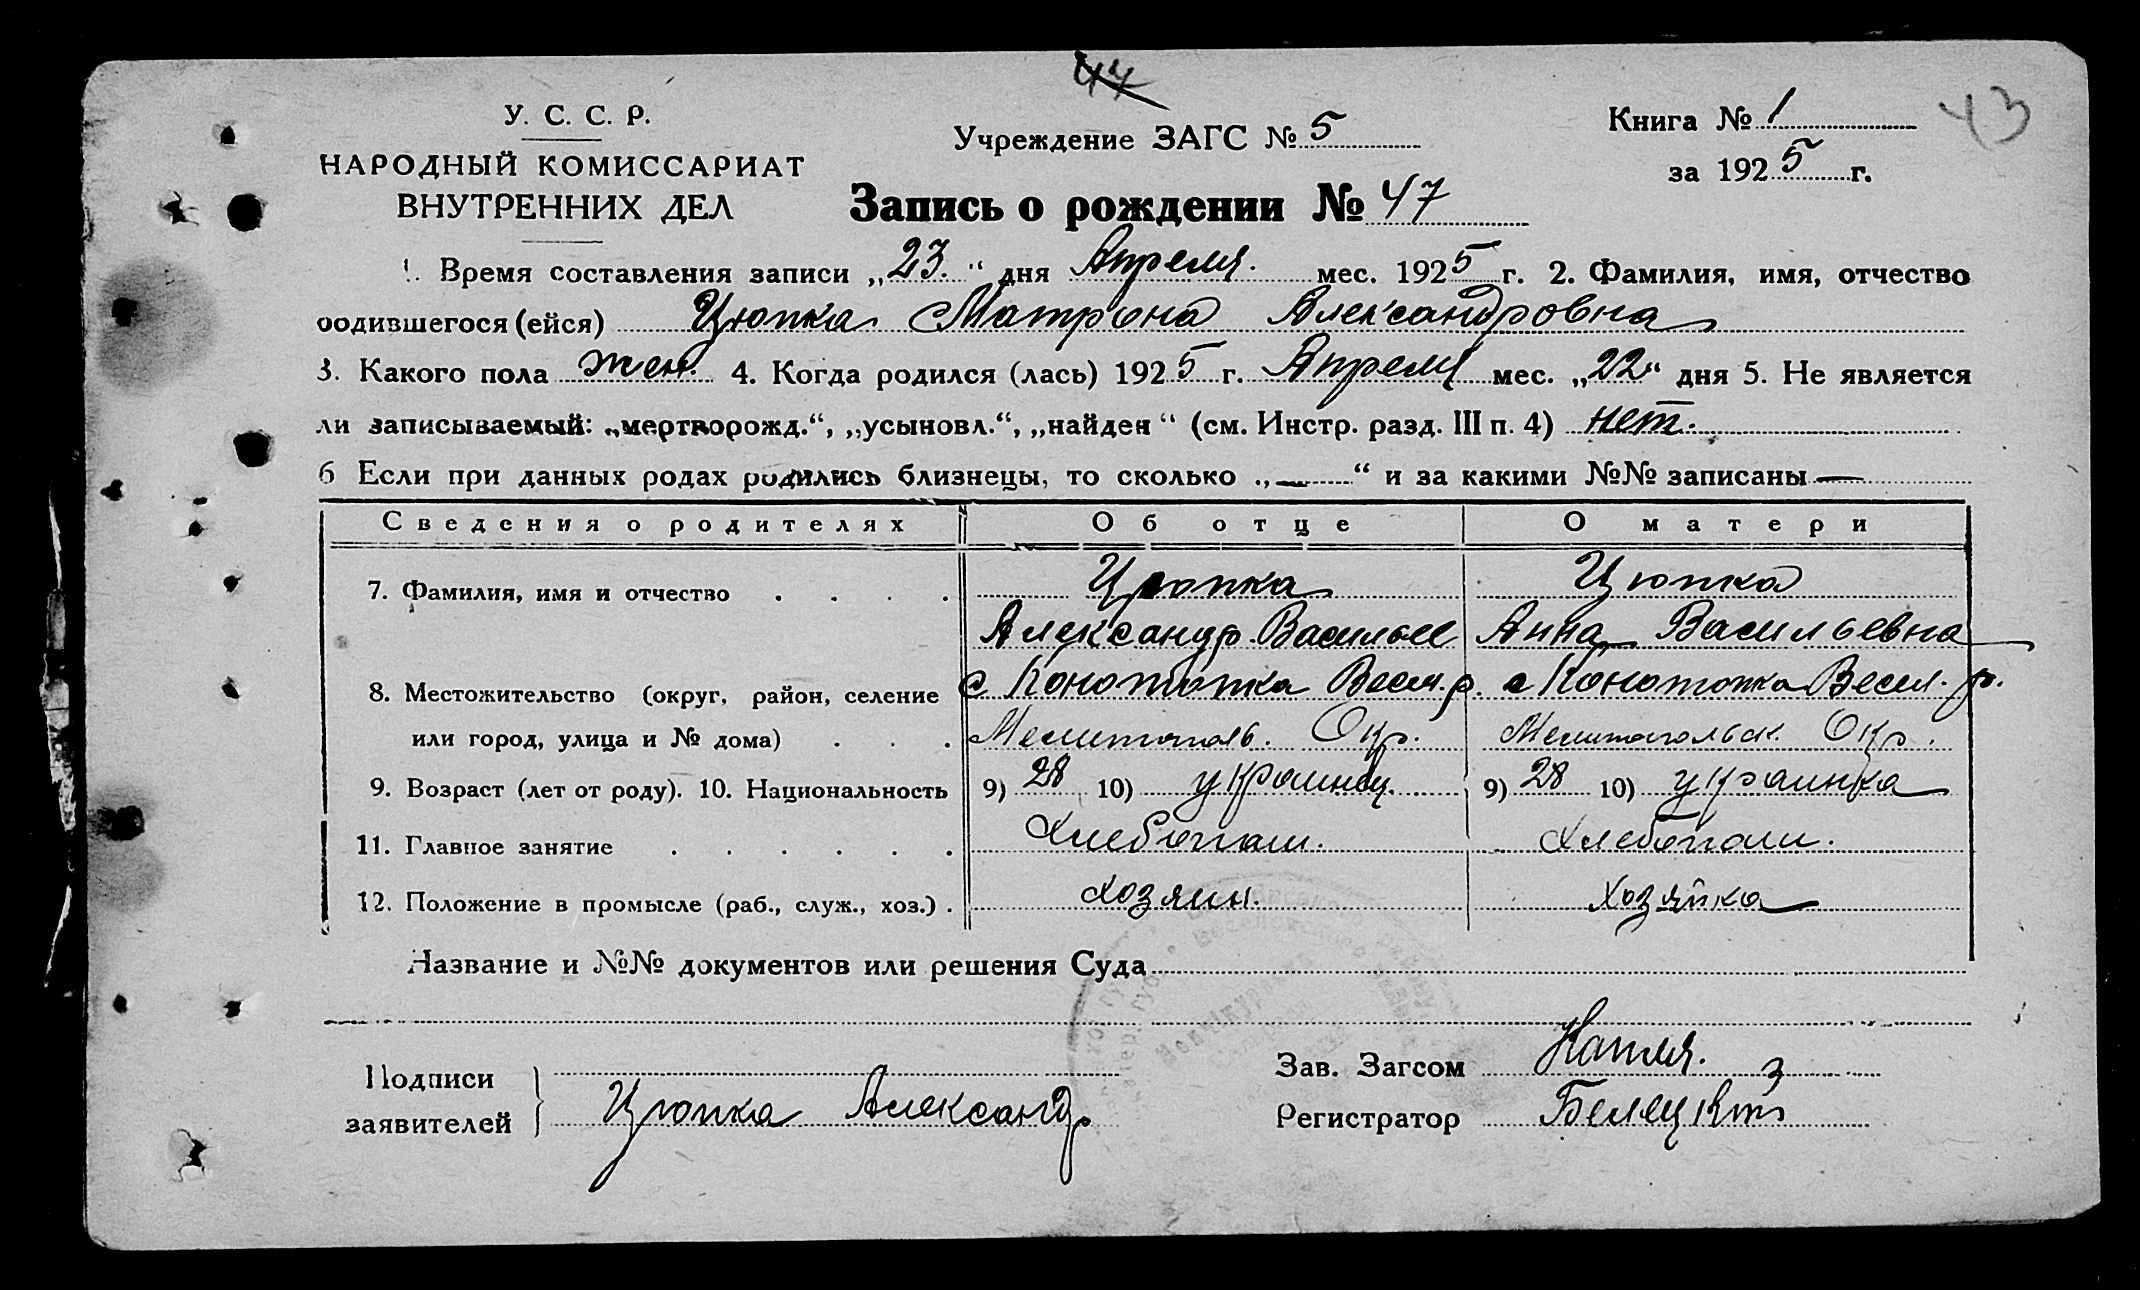 47
43
У. С. С. Р.
НАРОДНЫЙ КОМИССАРИАТ
ВНУТРЕННИХ ДЕЛ
Учреждение ЗАГС № 5
Книга № 1
за 1925 г.
Запись о рождении № 47
1. Время составления записи „23.“ дня Апреля. мес. 1925 г. 2. Фамилия, имя, отчество
родившегося (ейся) Цюпка Матрона Александровна
3. Какого пола жен. 4. Когда родился (лась) 1925 г. Апреля мес. „22“ дня 5. Не является
ли записываемый: „мертворожд.“, „усыновл.“, „найден“ (см. Инстр. разд. III п. 4) нет.
6 Если при данных родах родились близнецы, то сколько „—“ и за какими №№ записаны —
Сведения о родителях Об отце О матери
7. Фамилия, имя и отчество . . . . Цюпка Цюпка
Александр Васильев Анна Васильевна
8. Местожительство (округ, район, селение с Конотопка Весел. р. с Конотопка Весел. р.
или город, улица и № дома) . . . Мелитополь. Окр. Мелитопольск. Окр.
9. Возраст (лет от роду). 10. Национальность 9) 28 10) украинец. 9) 28 10) украинка
11. Главное занятие . . . . . . Хлебопаш. Хлебопаш.
12. Положение в промысле (раб., служ., хоз.) . Хозяин. Хозяйка
Название и №№ документов или решения Суда
Подписи
заявителей
Цюпка Александр
Зав. Загсом
Регистратор Белецкий